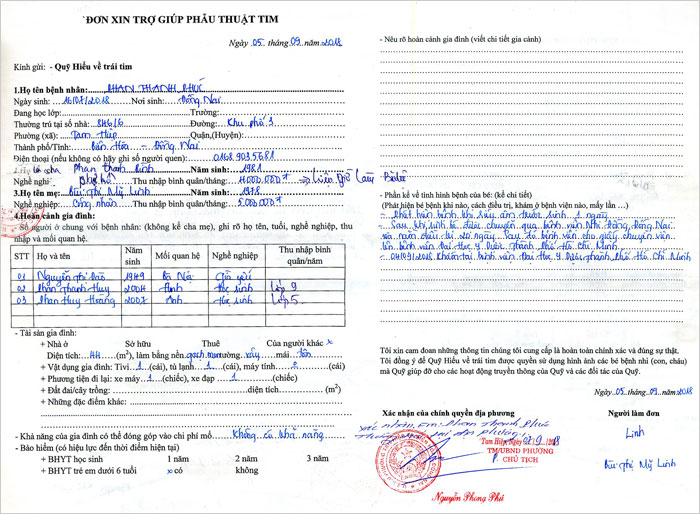 ĐƠN XIN TRỢ GIÚP PHẪU THUẬT TIM
Ngày 05 tháng 09 năm 2018
Kính gửi: - Quỹ Hiểu về trái tim
1.Họ tên bệnh nhân: PHAN THANH PHÚC
Ngày sinh: 16/07/2018 Nơi sinh: Đồng Nai
Đang học lớp: Trường:
Thường trú tại số nhà: 8H6/6 Đường: Khu phố 3
Phường (xã): Tam Hiệp Quận,(Huyện):
Thành phố/Tỉnh: Biên Hòa - Đồng Nai
Điện thoại (nếu không có hãy ghi số người quen): 0168.903.5681
2.Họ tên cha Phan Thanh Bình Năm sinh: 1981
Nghề nghiệp: phụ hồ Thu nhập bình quân/tháng: 4.000.000đ
3.Họ tên mẹ: Bùi Thị Mỹ Linh Năm sinh: 1978
Nghề nghiệp: Công nhân Thu nhập bình quân/tháng: 5.000.000đ
4.Hoàn cảnh gia đình:
- Số người ở chung với bệnh nhân: (không kể cha mẹ), ghi rõ họ tên, tuổi, nghề nghiệp, thu nhập và mối quan hệ.
STT Họ và tên Năm sinh Mối quan hệ Nghề nghiệp Thu nhập bình quân/năm
01 Nguyễn Thị 1949 Bà Nội Già yếu
02 Phan Thanh Huy 2004 Anh Học sinh Lớp 9
03 Phan Huy Hoàng 2007 Anh Học sinh Lớp 5
- Tài sản gia đình:
+ Nhà ở Sở hữu Thuê Của người khác x
Diện tích: (m2), làm bằng nền gạch men tường xây mái tôn
+ Vật dụng gia đình: Tivi 1 (cái), tủ lạnh 1 (cái), máy tính 2 (cái)
+ Phương tiện đi lại: xe máy 1 (chiếc), xe đạp 1 (chiếc)
+ Đất đai/cây trồng: diện tích (m2)
+ Những đặc điểm khác:
- Khả năng của gia đình có thể đóng góp vào chi phí mổ Không có khả năng
- Bảo hiểm (có hiệu lực đến thời điểm hiện tại)
+ BHYT học sinh 1 năm 2 năm 3 năm
+ BHYT trẻ em dưới 6 tuổi x có không
- Nêu rõ hoàn cảnh gia đình (viết chi tiết gia cảnh)
- Phần kể về tình hình bệnh của bé: (kể chi tiết)
(Phát hiện bệnh khi nào, cách điều trị, khám ở bệnh viện nào, mấy lần …)
Phát hiện bệnh khi sinh 1 ngày
Sau khi sinh bé được chuyển qua bệnh viện Nhi đồng Đồng Nai
20 ngày sau đó bệnh viện cho giấy chuyển viện
lên bệnh viện Đại Học Y Dược Thành Phố Hồ Chí Minh
04/09/2018 Khám tại bệnh viện Đại Học Y Dược Thành Phố Hồ Chí Minh
Tôi xin cam đoan những thông tin chúng tôi cung cấp là hoàn toàn chính xác và đúng sự thật.
Tôi đồng ý để Quỹ Hiểu về trái tim được quyền sử dụng hình ảnh các bé bệnh nhi (con, cháu) mà Quỹ giúp đỡ cho các hoạt động truyền thông của Quỹ và các đối tác của Quỹ.
Ngày 05 tháng 09 năm 2018
Xác nhận của chính quyền địa phương Người làm đơn
Xác nhận em: Phan Thanh Phúc
địa phương
Tam Hiệp, 07.9.2018
TM/UBND PHƯỜNG
CHỦ TỊCH
Linh
Bùi Thị Mỹ Linh
Nguyễn Phong Phú